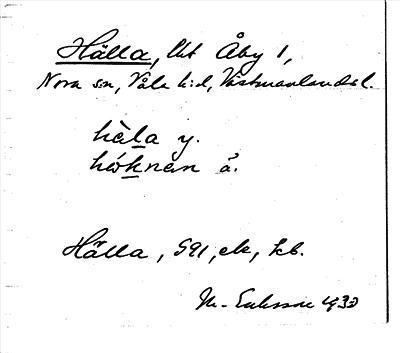 Hälla, lht Åby 1,
Nora sn, Våla h:d, Västmanlands l.
hὲla y.
å.
Hälla, S91, ek, kb.
M. Eriksson 1930